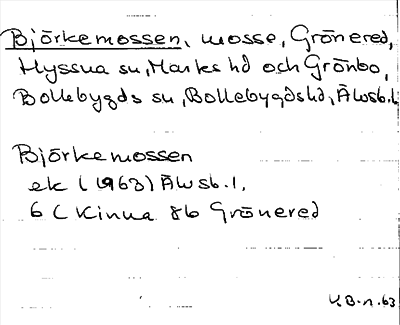 Björkemossen, mosse, Grönered,
Hyssna sn, Marks hd och Grönbo,
Bollebygds sn, Bollebygdshd, Älvsb.l
Björkemossen
ek (1963) Älvsb.l,
6 C Kinna 8b Grönered
V.B-n.63